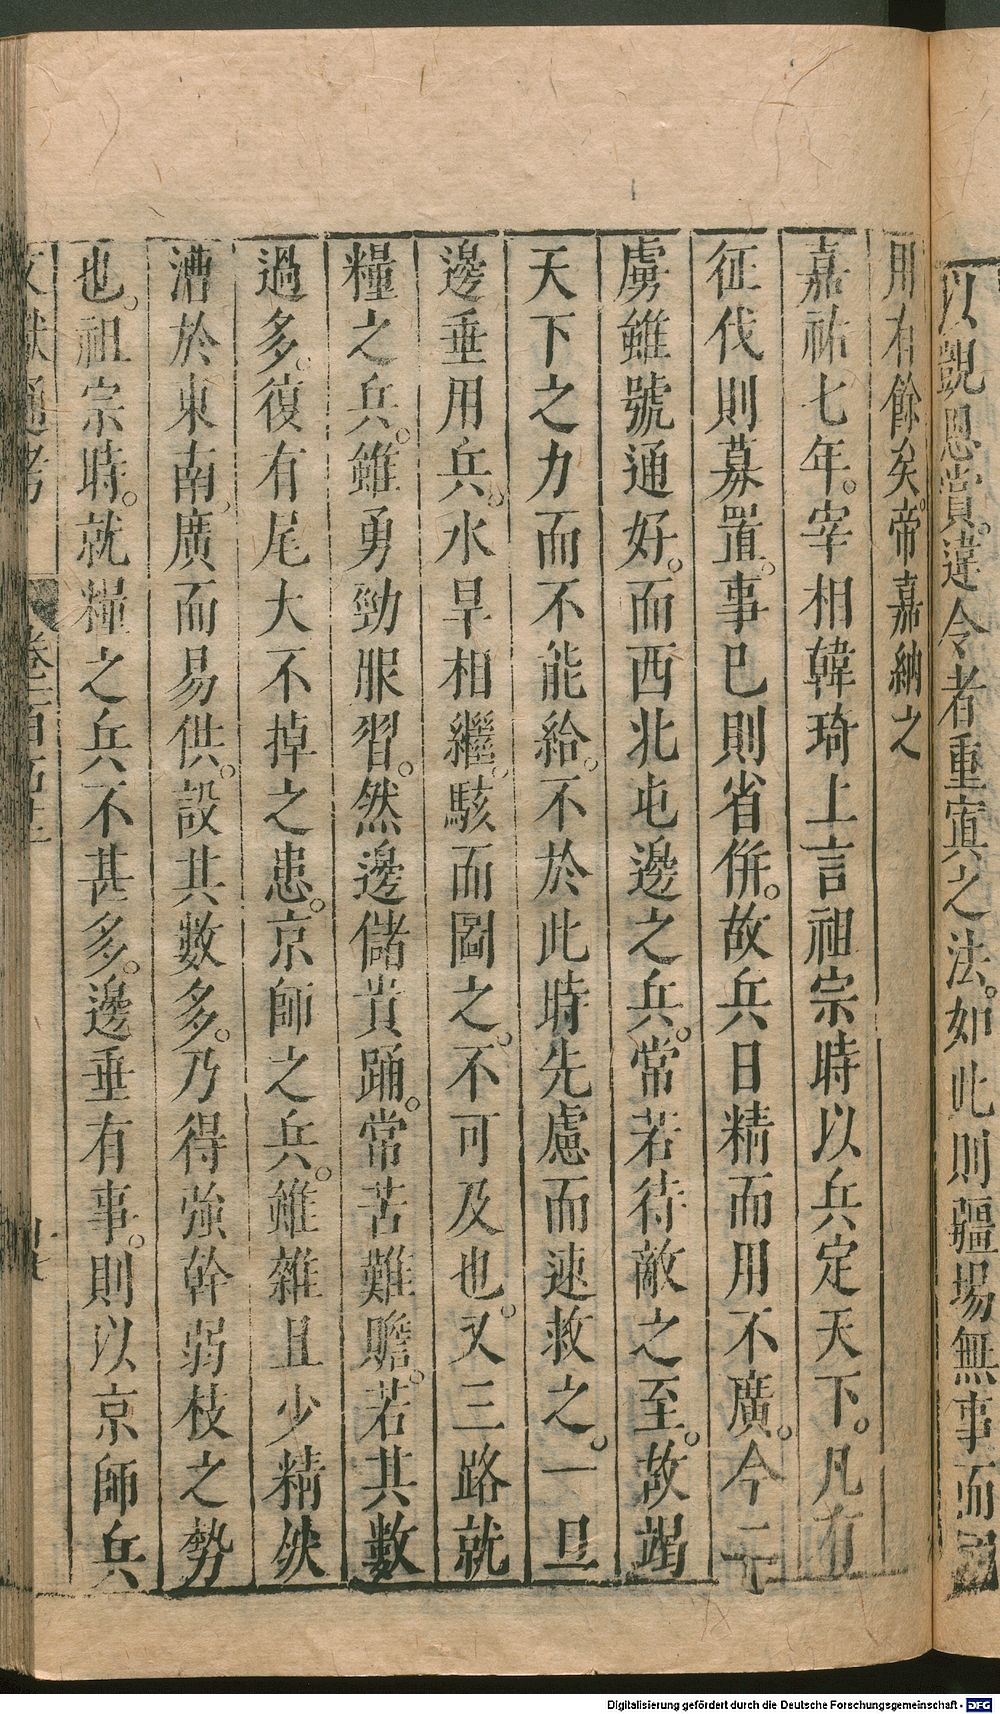 以覬恩賞。違令者重寘之法。如此則疆場無事而國
用有餘矣。帝嘉納之
嘉祐七年。宰相韓琦上言祖宗時以兵定天下。凡有
征伐則募置。事已則省併。故兵日精而用不廣。今二
虜雖號通好。而西北屯邊之兵。常若待敵之至。故竭
天下之力而不能給。不於此時先慮而速救之。一旦
邊垂用兵。水旱相繼。駭而圖之。不可及也。又三路就
糧之兵。雖勇勁服習。然邊儲貴踊。常苦難贍。若其數
過多。復有尾大不掉之患。京師之兵。雖雜且少精然
漕於東南。廣而易供。設其數多。乃得強幹弱枝之勢
也。祖宗時。就糧之兵不甚多。邊垂有事。則以京師兵
文獻通考 卷一百五十二
Digitalisierung gefördert durch die Deutsche Forschungsgemeinschaft - DFG